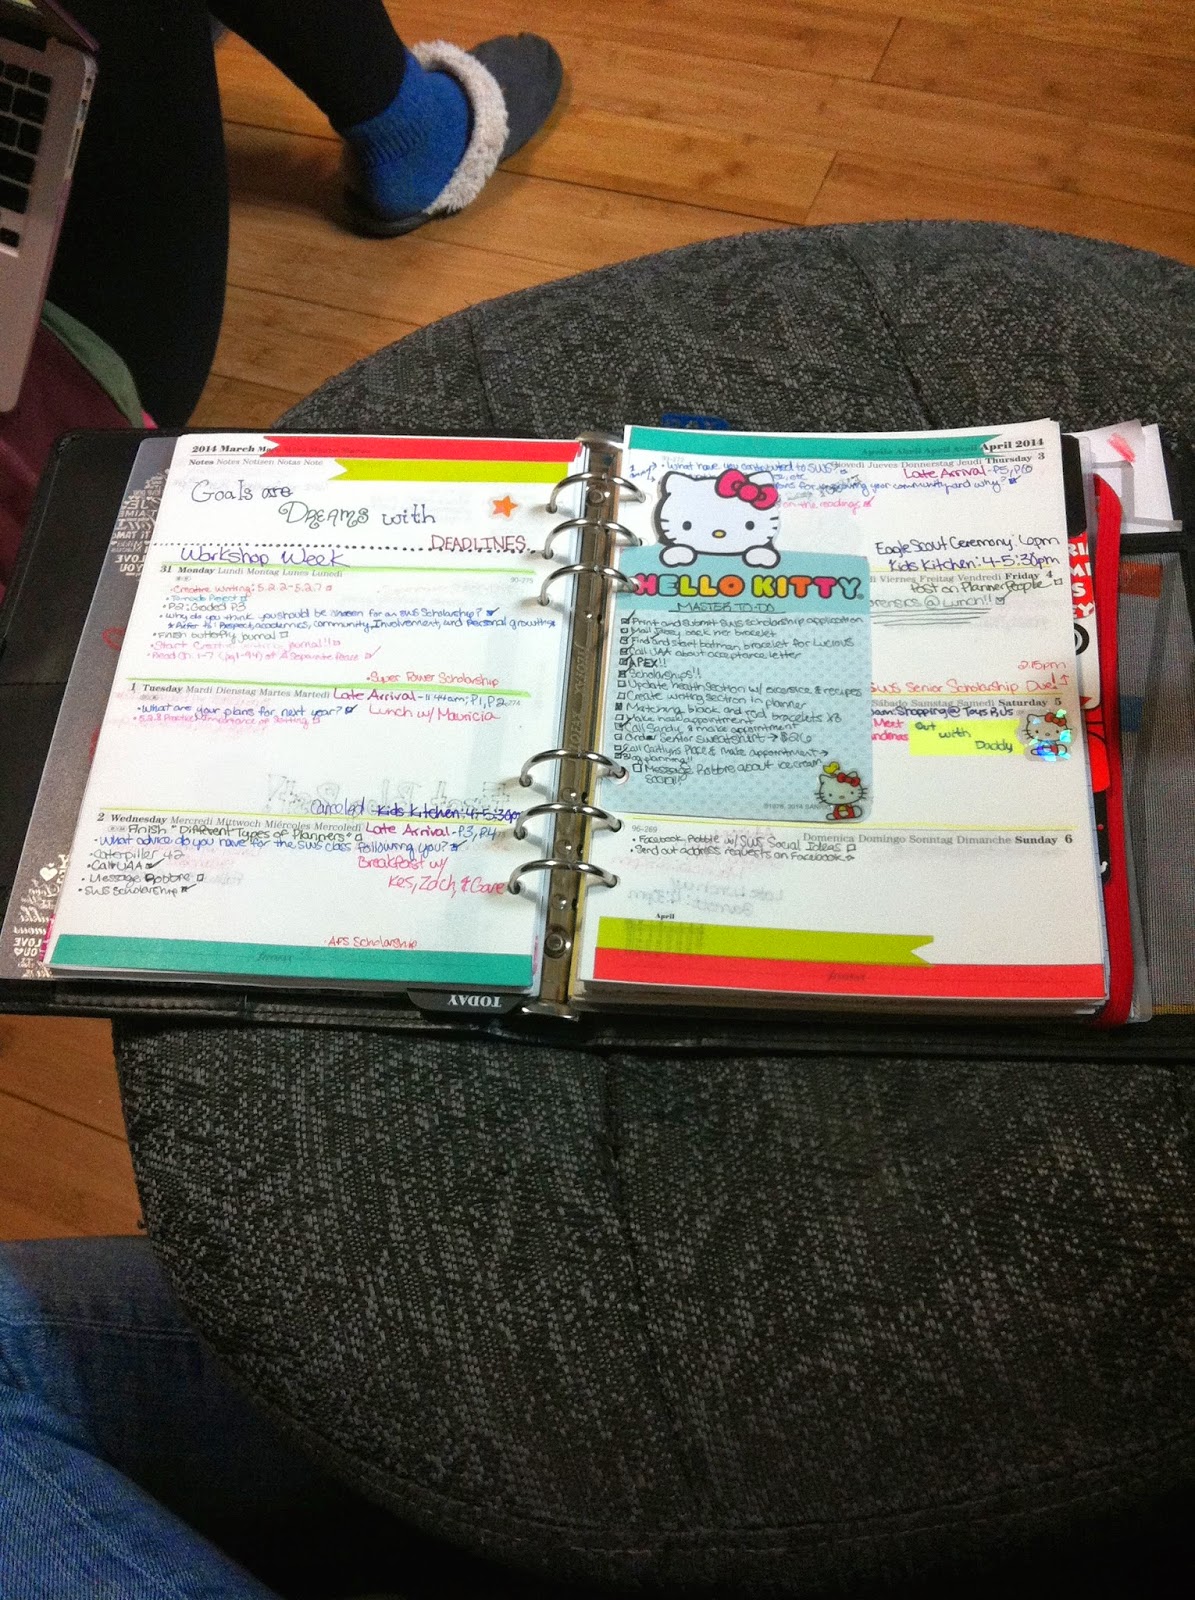 2014 March
Notes Notes Notizen Notar Note
Goals are
DREAMS with
DEADLINES
Workshop Week
31 Monday Lundi Montag Lunes Lunedì
90-275
• Creative Writing: 5.2.2-5.2.7
• Tornado Project
• P2: Graded P3
• Why do you think you should be chosen for an SWS Scholarship?
* Refer to: Respect, academics, community, Involvement, and personal growth
• Finish butterfly journal
• Start Creative
• Read Ch. 1-7 (pg 1-94) of A Separate Peace
• Super Power Scholarship
1 Tuesday Mardi Dienstag Martes Martedì
Late Arrival - 11:44am; P1, P2
Lunch w/ Mauricia
• What are your plans for next year?
• 5.2.8 Practice: Importance of Setting
Canceled Kids Kitchen: 4-5:30p
2 Wednesday Mercredi Mittwoch Miércoles Mercoledì
Late Arrival - P3, P4
Finish "Different Types of Planners"
• What advice do you have for the SWS class following you?
• Caterpiller 42
• Call UAA
• Message Robbie
• SWS Scholarship
Breakfast w/
Kes, Zach, &
• AFS Scholarship
TODAY
April 2014
Giovedì Jueves Donnerstag Jeudi Thursday 3
• What have you contributed to SWS?
Late Arrival - P5, P6
for improving your community and why?
on the reading
Eagle Scout Ceremony: 6pm
Kids Kitchen: 4-5:30pm
Viernes Freitag Vendredi Friday 4
Post on Planner People
@ Lunch!!
2:15pm
SWS Senior Scholarship Due!
Sábado Samstag Samedi Saturday 5
Shopping @ Toys R Us
Meet
Out
with
Daddy
HELLO KITTY
MASTER TO-DO
Print and Submit SWS scholarship application
Mail Jessy back her bracelet
Find and start batman bracelet for Lucius
Call UAA about acceptance letter
APEX!!
Scholarships!!
Update health section w/ exercise & recipes
Create writing section in planner
Matching black and red bracelets x8
Make hair appointment
Call Sandy & make appointment
Order Senior Sweatshirt → $26
Call Caitlyn's Place & make appointment →
Blog planning!!
Message Robbie about ice cream
Social!!
96-269
Domenica Domingo Sonntag Dimanche Sunday 6
• Facebook Robbie w/ SWS Social Ideas
• Send out address requests on Facebook
April